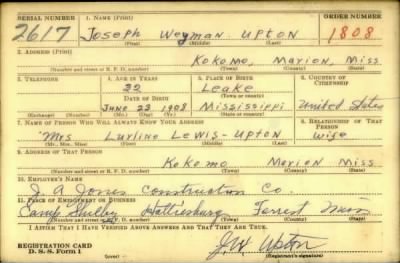 SERIAL NUMBER 1. NAME (Print) ORDER NUMBER
2617 Joseph Weyman Upton 1808
(First) (Middle) (Last)
2. ADDRESS (Print)
Kokomo, Marion, Miss
(Number and street or R. F. D. number) (Town) (County) (State)
3. TELEPHONE 4. AGE IN YEARS 5. PLACE OF BIRTH 6. COUNTRY OF CITIZENSHIP
32 Leake
DATE OF BIRTH (Town or county)
June 23 1908 Mississippi United States
(Exchange) (Number) (Mo.) (Day) (Yr.) (State or country)
7. NAME OF PERSON WHO WILL ALWAYS KNOW YOUR ADDRESS 8. RELATIONSHIP OF THAT PERSON
Mrs Lurline Lewis-Upton wife
(Mr., Mrs., Miss) (First) (Middle) (Last)
9. ADDRESS OF THAT PERSON
Kokomo Marion Miss
(Number and street or R. F. D. number) (Town) (County) (State)
10. EMPLOYER'S NAME
J. A Jones Construction Co.
11. PLACE OF EMPLOYMENT OR BUSINESS
Camp Shelby Hattiesburg Forrest Miss
(Number and street or R. F. D. number) (Town) (County) (State)
I AFFIRM THAT I HAVE VERIFIED ABOVE ANSWERS AND THAT THEY ARE TRUE.
REGISTRATION CARD
D. S. S. Form 1 J W Upton
(Registrant's signature)